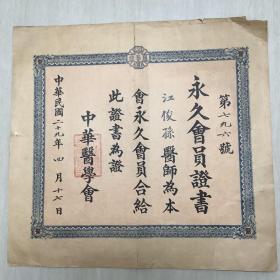 永久會員證書
第七九六號
江俊孫醫師為本
會永久會員合給
此證書為證
中華醫學會
中華民國二十九年四月十七日